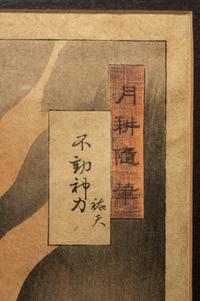 月耕随筆
不動神力
祐天